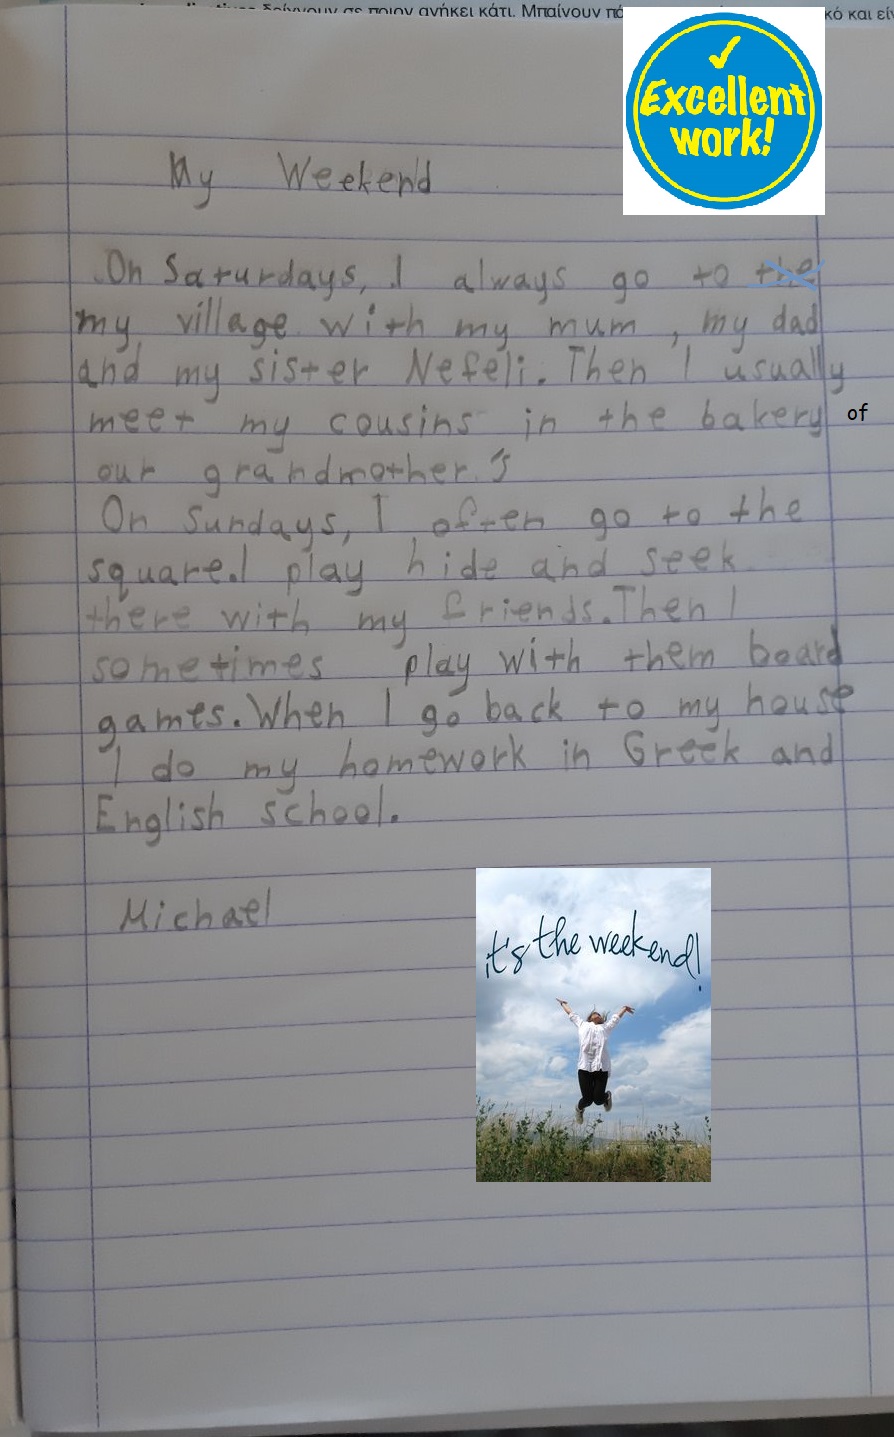 δείχνουν σε ποιον ανήκει κάτι. Μπαίνουν
Excellent
work!
My Weekend
On Saturdays, I always go to the
my village with my mum, my dad
and my sister Nefeli. Then I usually
meet my cousins in the bakery of
our grandmother's
On Sundays, I often go to the
square.I play hide and seek
there with my friends.Then I
sometimes play with them board
games.When I go back to my house
I do my homework in Greek and
English school.
Michael
it's the weekend!